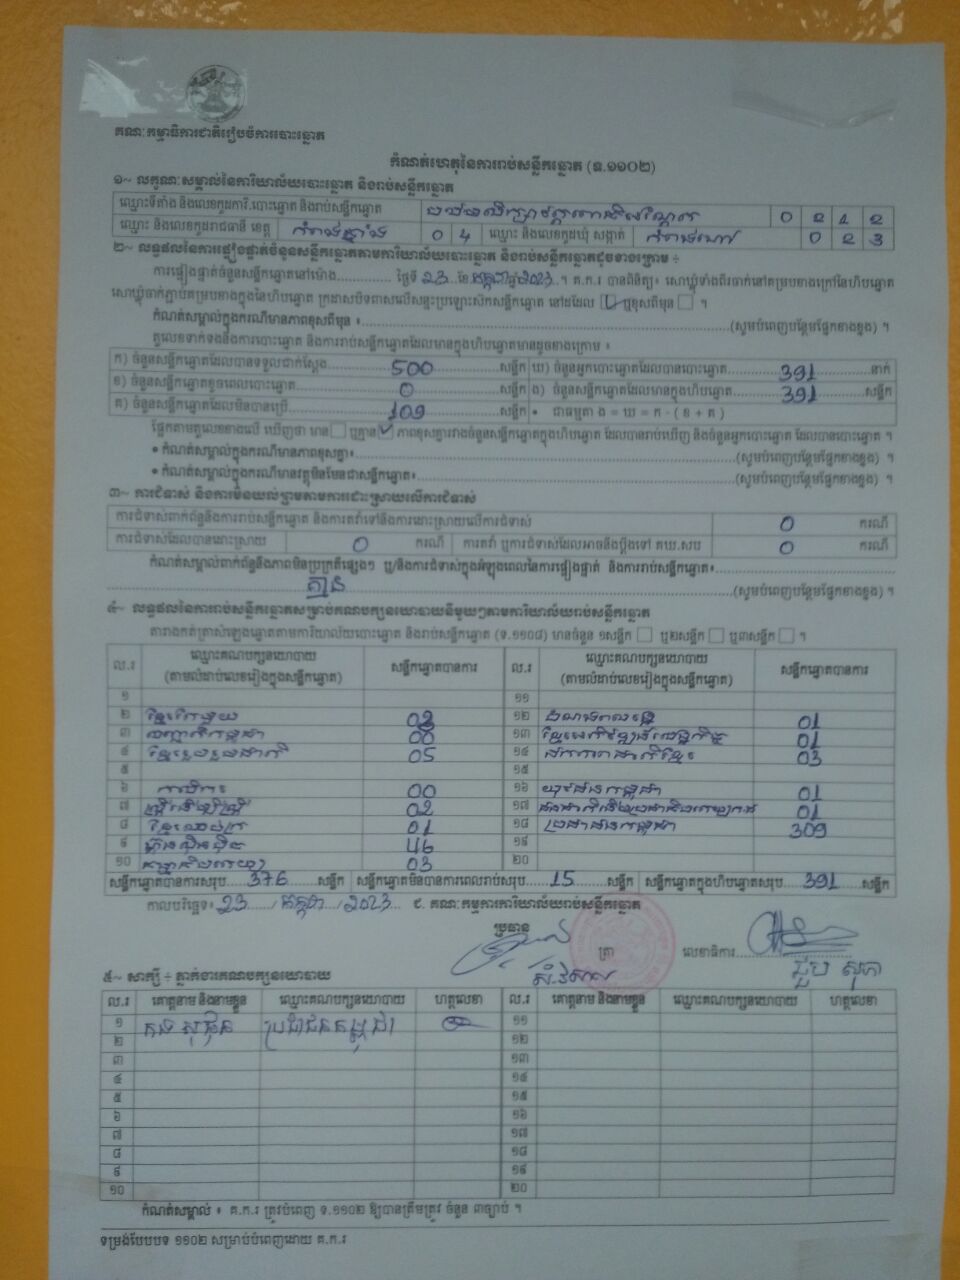 គណៈកម្មាធិការជាតិរៀបចំការបោះឆ្នោត
កំណត់ហេតុនៃការរាប់សន្លឹកឆ្នោត (ទ.១១០២)
១~ លក្ខណៈសម្គាល់នៃការិយាល័យបោះឆ្នោត និងរាប់សន្លឹកឆ្នោត
ឈ្មោះទីតាំង និងលេខកូដការិ.បោះឆ្នោត និងរាប់សន្លឹកឆ្នោត 0 2 1 2
ឈ្មោះ និងលេខកូដរាជធានី ខេត្ត កំពង់ឆ្នាំង 0 4 ឈ្មោះ និងលេខកូដឃុំ សង្កាត់ 0 2 3
២~ លទ្ធផលនៃការផ្ទៀងផ្ទាត់ចំនួនសន្លឹកឆ្នោតតាមការិយាល័យបោះឆ្នោត និងរាប់សន្លឹកឆ្នោតដូចខាងក្រោម ៖
ការផ្ទៀងផ្ទាត់ចំនួនសន្លឹកឆ្នោតនៅម៉ោង ថ្ងៃទី 23 ខែ កក្កដា ឆ្នាំ 2023 ។ គ.ក.រ បានពិនិត្យ៖ សោឃ្លុំទាំងពីរចាក់នៅគម្របខាងក្រៅនៃហិបឆ្នោត
សោឃ្លុំចាក់ភ្ជាប់គម្របខាងក្នុងនៃហិបឆ្នោត ក្រដាសបិទពាសលើសន្ទះប្រឡោះសិកសន្លឹកឆ្នោត នៅដដែល ឬខុសពីមុន ។
កំណត់សម្គាល់ក្នុងករណីមានភាពខុសពីមុន ៖ (សូមបំពេញបន្ថែមផ្នែកខាងខ្នង) ។
តួលេខទាក់ទងនឹងការបោះឆ្នោត និងការរាប់សន្លឹកឆ្នោតដែលមានក្នុងហិបឆ្នោតមានដូចខាងក្រោម ៖
ក) ចំនួនសន្លឹកឆ្នោតដែលបានទទួលជាក់ស្តែង 500 សន្លឹក ឃ) ចំនួនអ្នកបោះឆ្នោតដែលបានបោះឆ្នោត 391 នាក់
ខ) ចំនួនសន្លឹកឆ្នោតខូចពេលបោះឆ្នោត 0 សន្លឹក ង) ចំនួនសន្លឹកឆ្នោតដែលមានក្នុងហិបឆ្នោត 391 សន្លឹក
គ) ចំនួនសន្លឹកឆ្នោតដែលមិនបានប្រើ 109 សន្លឹក • ជាធម្មតា ង = ឃ = ក - ( ខ + គ )
ផ្អែកតាមតួលេខខាងលើ ឃើញថា មាន ឬគ្មាន ភាពខុសគ្នារវាងចំនួនសន្លឹកឆ្នោតក្នុងហិបឆ្នោត ដែលបានរាប់ឃើញ និងចំនួនអ្នកបោះឆ្នោត ដែលបានបោះឆ្នោត ។
• កំណត់សម្គាល់ក្នុងករណីមានភាពខុសគ្នា៖ (សូមបំពេញបន្ថែមផ្នែកខាងខ្នង) ។
• កំណត់សម្គាល់ក្នុងករណីមានវត្ថុមិនមែនជាសន្លឹកឆ្នោត៖ (សូមបំពេញបន្ថែមផ្នែកខាងខ្នង) ។
៣~ ការជំទាស់ និងការមិនយល់ព្រមតាមការដោះស្រាយលើការជំទាស់
ការជំទាស់ពាក់ព័ន្ធនឹងការរាប់សន្លឹកឆ្នោត និងការតវ៉ាទៅនឹងការដោះស្រាយលើការជំទាស់ 0 ករណី
ការជំទាស់ដែលបានដោះស្រាយ 0 ករណី ការតវ៉ា ឬការជំទាស់ដែលអាចនឹងប្តឹងទៅ គឃ.សប 0 ករណី
កំណត់សម្គាល់ពាក់ព័ន្ធនឹងភាពមិនប្រក្រតីផ្សេងៗ ឬ/និងការជំទាស់ក្នុងអំឡុងពេលនៃការផ្ទៀងផ្ទាត់ និងការរាប់សន្លឹកឆ្នោត៖
គ្មាន (សូមបំពេញបន្ថែមផ្នែកខាងខ្នង) ។
៤~ លទ្ធផលនៃការរាប់សន្លឹកឆ្នោតសម្រាប់គណបក្សនយោបាយនីមួយៗតាមការិយាល័យរាប់សន្លឹកឆ្នោត
តារាងកត់ត្រាសំឡេងឆ្នោតតាមការិយាល័យបោះឆ្នោត និងរាប់សន្លឹកឆ្នោត (ទ.១១០៨) មានចំនួន ១សន្លឹក ឬ២សន្លឹក ឬ៣សន្លឹក ។
ល.រ ឈ្មោះគណបក្សនយោបាយ (តាមលំដាប់លេខរៀងក្នុងសន្លឹកឆ្នោត) សន្លឹកឆ្នោតបានការ ល.រ ឈ្មោះគណបក្សនយោបាយ (តាមលំដាប់លេខរៀងក្នុងសន្លឹកឆ្នោត) សន្លឹកឆ្នោតបានការ
១ ១១
២ 02 ១២ 01
៣ 00 ១៣ 01
៤ ខ្មែររួបរួមជាតិ 05 ១៤ 03
៥ ១៥
៦ 00 ១៦ យុវជនកម្ពុជា 01
៧ 02 ១៧ 01
៨ 01 ១៨ ប្រជាជនកម្ពុជា 309
៩ ហ៊្វុនស៊ិនប៉ិច 46 ១៩
១០ 03 ២០
សន្លឹកឆ្នោតបានការសរុប 376 សន្លឹក សន្លឹកឆ្នោតមិនបានការពេលរាប់សរុប 15 សន្លឹក សន្លឹកឆ្នោតក្នុងហិបឆ្នោតសរុប 391 សន្លឹក
កាលបរិច្ឆេទ៖ 23 / កក្កដា / 2023 ៩. គណៈកម្មការការិយាល័យរាប់សន្លឹកឆ្នោត
ប្រធាន ត្រា លេខាធិការ
៥~ សាក្សី ÷ ភ្នាក់ងារគណបក្សនយោបាយ
ល.រ គោត្តនាម និងនាមខ្លួន ឈ្មោះគណបក្សនយោបាយ ហត្ថលេខា ល.រ គោត្តនាម និងនាមខ្លួន ឈ្មោះគណបក្សនយោបាយ ហត្ថលេខា
១ ប្រជាជនកម្ពុជា ១១
២ ១២
៣ ១៣
៤ ១៤
៥ ១៥
៦ ១៦
៧ ១៧
៨ ១៨
៩ ១៩
១០ ២០
កំណត់សម្គាល់ ៖ គ.ក.រ ត្រូវបំពេញ ទ.១១០២ ឱ្យបានត្រឹមត្រូវ ចំនួន ៣ច្បាប់ ។
ទម្រង់បែបបទ ១១០២ សម្រាប់បំពេញដោយ គ.ក.រ